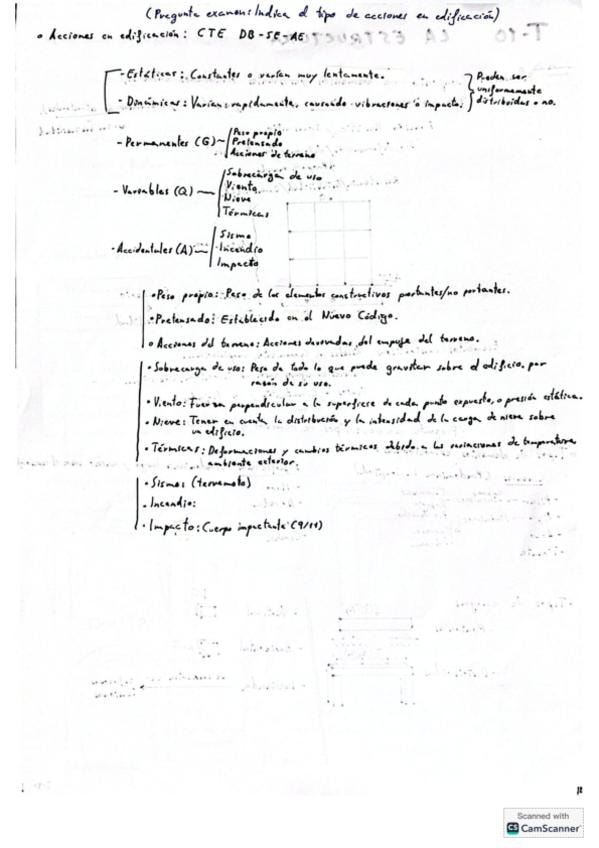 (Pregunta examen: Indica el tipo de acciones en edificación)
• Acciones en edificación: CTE DB-SE-AE
- Estáticas: Constantes o varían muy lentamente.
- Dinámicas: Varían rapidamente, causando vibraciones o impacto.
Pueden ser
uniformemente
distribuidas o no.
- Permanentes (G)
Peso propio
Pretensado
Acciones de terreno
- Variables (Q)
Sobrecarga de uso
Viento
Nieve
Térmicas
- Accidentales (A)
Sismo
Incendio
Impacto
• Peso propio: Peso de los elementos constructivos portantes/no portantes.
• Pretensado: Establecido en el Nuevo Código.
• Acciones del terreno: Acciones derivadas del empuje del terreno.
• Sobrecarga de uso: Peso de todo lo que puede gravitar sobre el edificio, por
razón de su uso.
• Viento: Fuerza perpendicular a la superficie de cada punto expuesto, o presión estática.
• Nieve: Tener en cuenta la distribución y la intensidad de la carga de nieve sobre
un edificio.
• Térmicas: Deformaciones y cambios térmicos debido a las variaciones de temperatura
ambiente exterior.
• Sismos (terremoto)
• Incendio:
• Impacto: Cuerpo impactante (9/11)
Scanned with
CS CamScanner